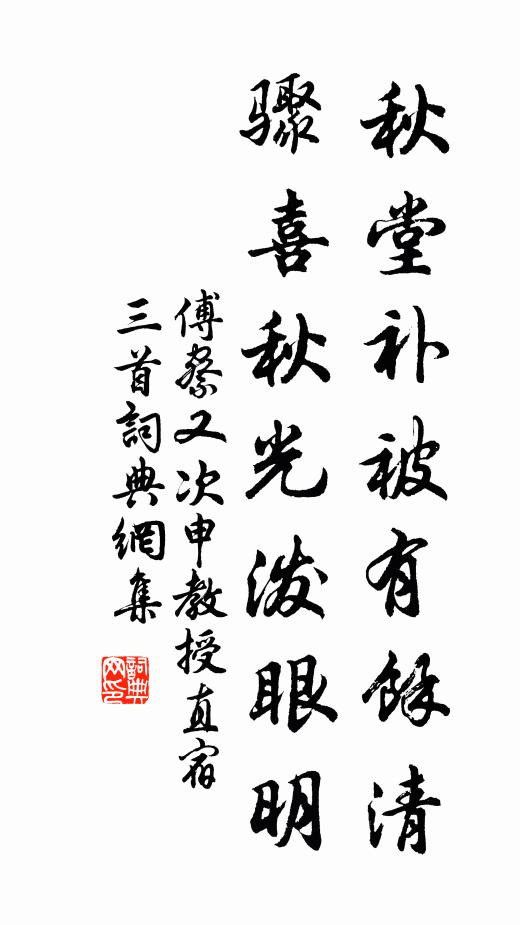 秋堂补被有馀清
骤喜秋光泼眼明
傅察又次申教授直宿
三首詞典網集
詞典
网印